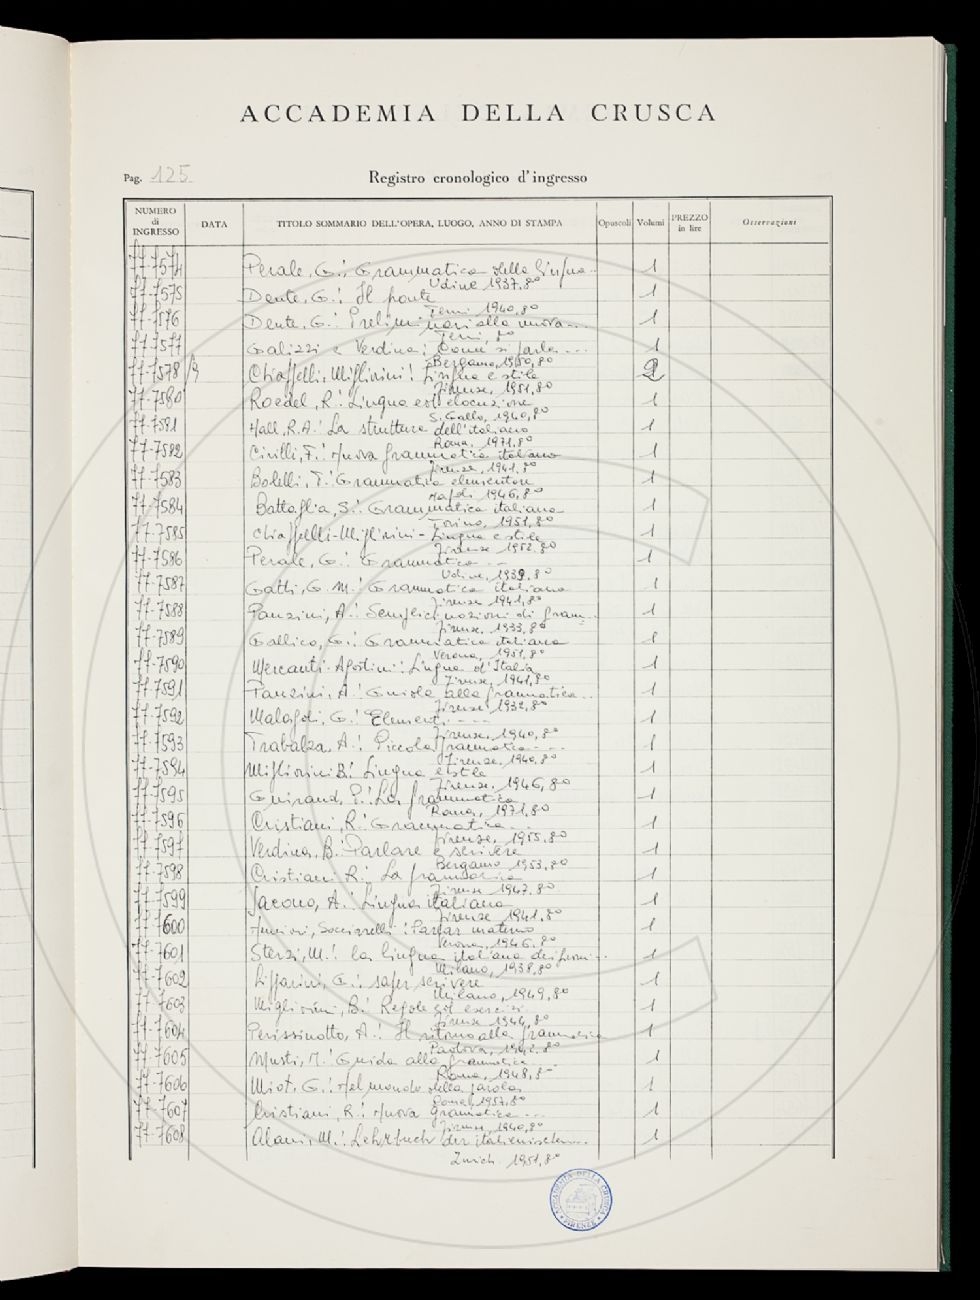 ACCADEMIA DELLA CRUSCA
Pag. 125
Registro cronologico d'ingresso
NUMERO di INGRESSO DATA TITOLO SOMMARIO DELL'OPERA, LUOGO, ANNO DI STAMPA Opuscoli Volumi PREZZO in lire Osservazioni
77-7574 Perale, G.: Grammatica della lingua.. 1
Udine 1937, 8°
77-7575 Dente, G.: Il ponte 1
Terni 1940, 8°
77-7576 Dente, G.: Preliminari alla nuova... 1
Terni, 8°
77-7577 Galizzi e Verdina: Come si parla... 1
Bergamo, 1950, 8°
77-7578/9 Chiappelli, Migliorini: Lingua e stile 2
Firenze, 1951, 8°
77-7580 Roedel, R.: Lingua ed elocuzione 1
S. Gallo, 1940, 8°
77-7581 Hall, R.A.: La struttura dell'italiano 1
Roma, 1971, 8°
77-7582 Civilli, F.: Nuova grammatica italiana 1
Firenze, 1941, 8°
77-7583 Bolelli, T.: Grammatica elementare 1
Napoli 1946, 8°
77-7584 Battaglia, S.: Grammatica italiana 1
Torino, 1951, 8°
77-7585 Chiappelli-Migliorini- Lingua e stile 1
Firenze 1952, 8°
77-7586 Perale, G.: Grammatica... 1
Udine, 1939, 8°
77-7587 Gatti, G. M.: Grammatica italiana 1
Firenze 1941, 8°
77-7588 Panzini, A.: Semplici nozioni di gram... 1
Firenze, 1933, 8°
77-7589 Gallico, G.: Grammatica italiana 1
Verona, 1951, 8°
77-7590 Mercanti-Agostini: Lingua d'Italia 1
Firenze, 1941, 8°
77-7591 Panzini, A.: Guida alla grammatica... 1
Firenze 1932, 8°
77-7592 Malagoli, G.: Elementi... 1
Firenze, 1940, 8°
77-7593 Trabalza, A.: Piccola grammatica... 1
Firenze, 1940, 8°
77-7594 Migliorini B.: Lingua e stile 1
Firenze, 1946, 8°
77-7595 Guiraud, P.: La grammatica 1
Roma, 1971, 8°
77-7596 Cristiani, R.: Grammatica... 1
Firenze, 1955, 8°
77-7597 Verdina, B. Parlare e scrivere 1
Bergamo 1953, 8°
77-7598 Cristiani R.: La grammatica 1
Firenze 1947, 8°
77-7599 Jacono, A.: Lingua italiana 1
Firenze 1941, 8°
77-7600 : Parlar materno 1
Verona, 1946, 8°
77-7601 Sterzi, M.: La lingua italiana dei... 1
Milano, 1938, 8°
77-7602 Lipparini, G.: Saper scrivere 1
Milano, 1949, 8°
77-7603 Migliorini, B.: Regole ed esercizi 1
Firenze 1944, 8°
77-7604 Perissinotto, A.: Il ritorno alla grammatica 1
Padova, 1942, 8°
77-7605 Musti, M.: Guida alla grammatica... 1
Roma, 1948, 8°
77-7606 Miot, G.: Nel mondo della parola 1
Roma, 1957, 8°
77-7607 Cristiani, R.: Nuova grammatica... 1
Firenze, 1940, 8°
77-7608 Alani, M.: Lehrbuch der italienischen... 1
Zurich. 1951, 8°
ACCADEMIA DELLA CRUSCA FIRENZE